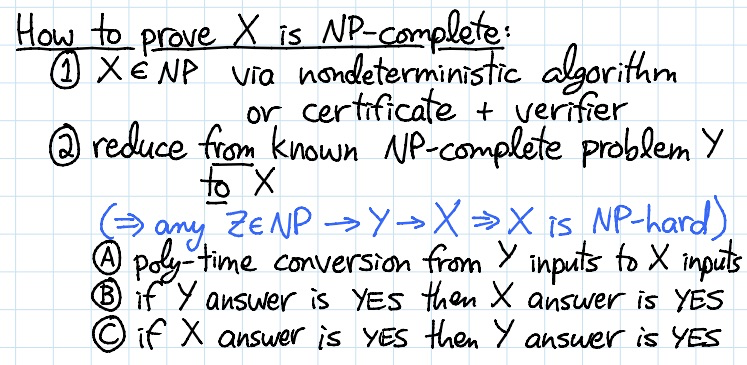 How to prove X is NP-complete:
① X ∈ NP via nondeterministic algorithm
or certificate + verifier
② reduce from known NP-complete problem Y
to X
(⇒ any Z ∈ NP → Y → X ⇒ X is NP-hard)
Ⓐ poly-time conversion from Y inputs to X inputs
Ⓑ if Y answer is YES then X answer is YES
Ⓒ if X answer is YES then Y answer is YES